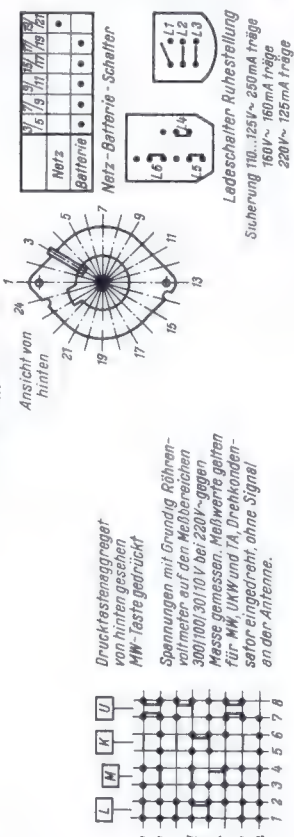 L K
M
U
1 2 3 4 5 6 7 8
Drucktastenaggregat
von hinten gesehen
MW-Taste gedrückt
Spannungen mit Grundig Röhren-
voltmeter auf den Meßbereichen
300/100/30/10 V bei 220V~gegen
Masse gemessen. Meßwerte gelten
für MW, UKW und TA, Drehkonden-
sator eingedreht, ohne Signal
an der Antenne.
Ansicht von
hinten
1
3
5
7
9
11
13
15
17
19
21
24
Netz
Batterie
Netz-Batterie-Schalter
L6
L5
L4
L1
L2
L3
Ladeschalter Ruhestellung
Sicherung 110...125V~ 250mA träge
160V~ 160mA träge
220V~ 125mA träge